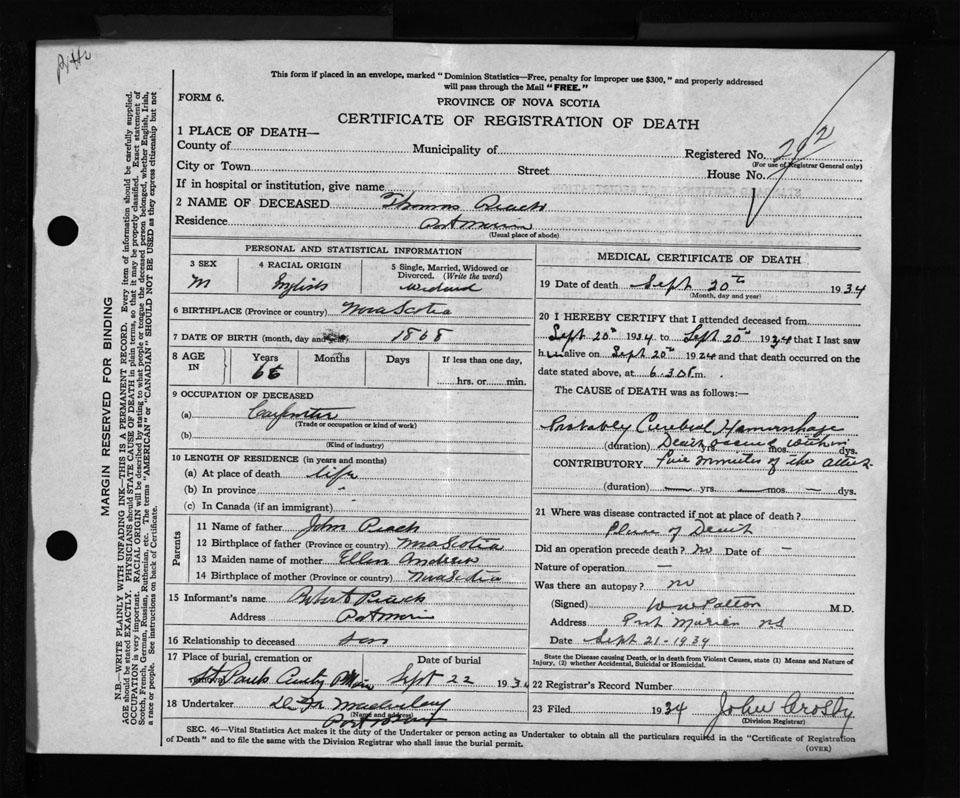 This form if placed in an envelope, marked "Dominion Statistics—Free, penalty for improper use $300," and properly addressed
will pass through the Mail "FREE."
FORM 6.
PROVINCE OF NOVA SCOTIA
CERTIFICATE OF REGISTRATION OF DEATH
1 PLACE OF DEATH—
County of
Municipality of
Registered No.
(For use of Registrar General only)
City or Town
Street
House No.
If in hospital or institution, give name
2 NAME OF DECEASED Thomas Peach
Residence Port Morien
(Usual place of abode)
PERSONAL AND STATISTICAL INFORMATION
3 SEX
M
4 RACIAL ORIGIN
English
5 Single, Married, Widowed or
Divorced. (Write the word)
Widowed
6 BIRTHPLACE (Province or country) Nova Scotia
7 DATE OF BIRTH (month, day and year) 1868
8 AGE
IN
Years
66
Months
Days
If less than one day,
hrs. or min.
9 OCCUPATION OF DECEASED
(a) Carpenter
(Trade or occupation or kind of work)
(b)
(Kind of industry)
10 LENGTH OF RESIDENCE (in years and months)
(a) At place of death life
(b) In province "
(c) In Canada (if an immigrant) -
Parents
11 Name of father John Peach
12 Birthplace of father (Province or country) Nova Scotia
13 Maiden name of mother Ellen Andrews
14 Birthplace of mother (Province or country) Nova Scotia
15 Informant's name Peach
Address Port Morien
16 Relationship to deceased son
17 Place of burial, cremation or
St Pauls Cemetery P Morien
Date of burial
Sept 22 1934
18 Undertaker
(Name and address)
MEDICAL CERTIFICATE OF DEATH
19 Date of death Sept 20th 1934
(Month, day and year)
20 I HEREBY CERTIFY that I attended deceased from
Sept 20th 1934 to Sept 20th 1934 that I last saw
him alive on Sept 20th 1934 and that death occurred on the
date stated above, at 6.30 P.m.
The CAUSE OF DEATH was as follows:—
Probably Cerebral Hemorrhage
(duration) Death occurred within yrs. mos. dys.
CONTRIBUTORY five minutes of the attack
(duration) — yrs. — mos. — dys.
21 Where was disease contracted if not at place of death?
Place of Death
Did an operation precede death? no Date of -
Nature of operation —
Was there an autopsy? no
(Signed) W W Patton M.D.
Address Port Morien NS
Date Sept 21 - 1934
State the Disease causing Death, or in death from Violent Causes, state (1) Means and Nature of
Injury, (2) whether Accidental, Suicidal or Homicidal.
22 Registrar's Record Number
23 Filed 1934 John Crosby
(Division Registrar)
SEC. 46—Vital Statistics Act makes it the duty of the Undertaker or person acting as Undertaker to obtain all the particulars required in the "Certificate of Registration
of Death" and to file the same with the Division Registrar who shall issue the burial permit.
(OVER)
MARGIN RESERVED FOR BINDING
N.B.—WRITE PLAINLY WITH UNFADING INK—THIS IS A PERMANENT RECORD. Every item of information should be carefully supplied.
AGE should be stated EXACTLY. PHYSICIANS should STATE CAUSE OF DEATH in plain terms, so that it may be properly classified. Exact statement of
OCCUPATION is very important. RACIAL ORIGIN will be described by stating to what people or tongue the deceased person belonged, whether English, Irish,
Scotch, French, German, Russian, Ruthenian, etc. The terms "AMERICAN" or "CANADIAN" SHOULD NOT BE USED as they express citizenship but not
a race or people. See instructions on back of Certificate.